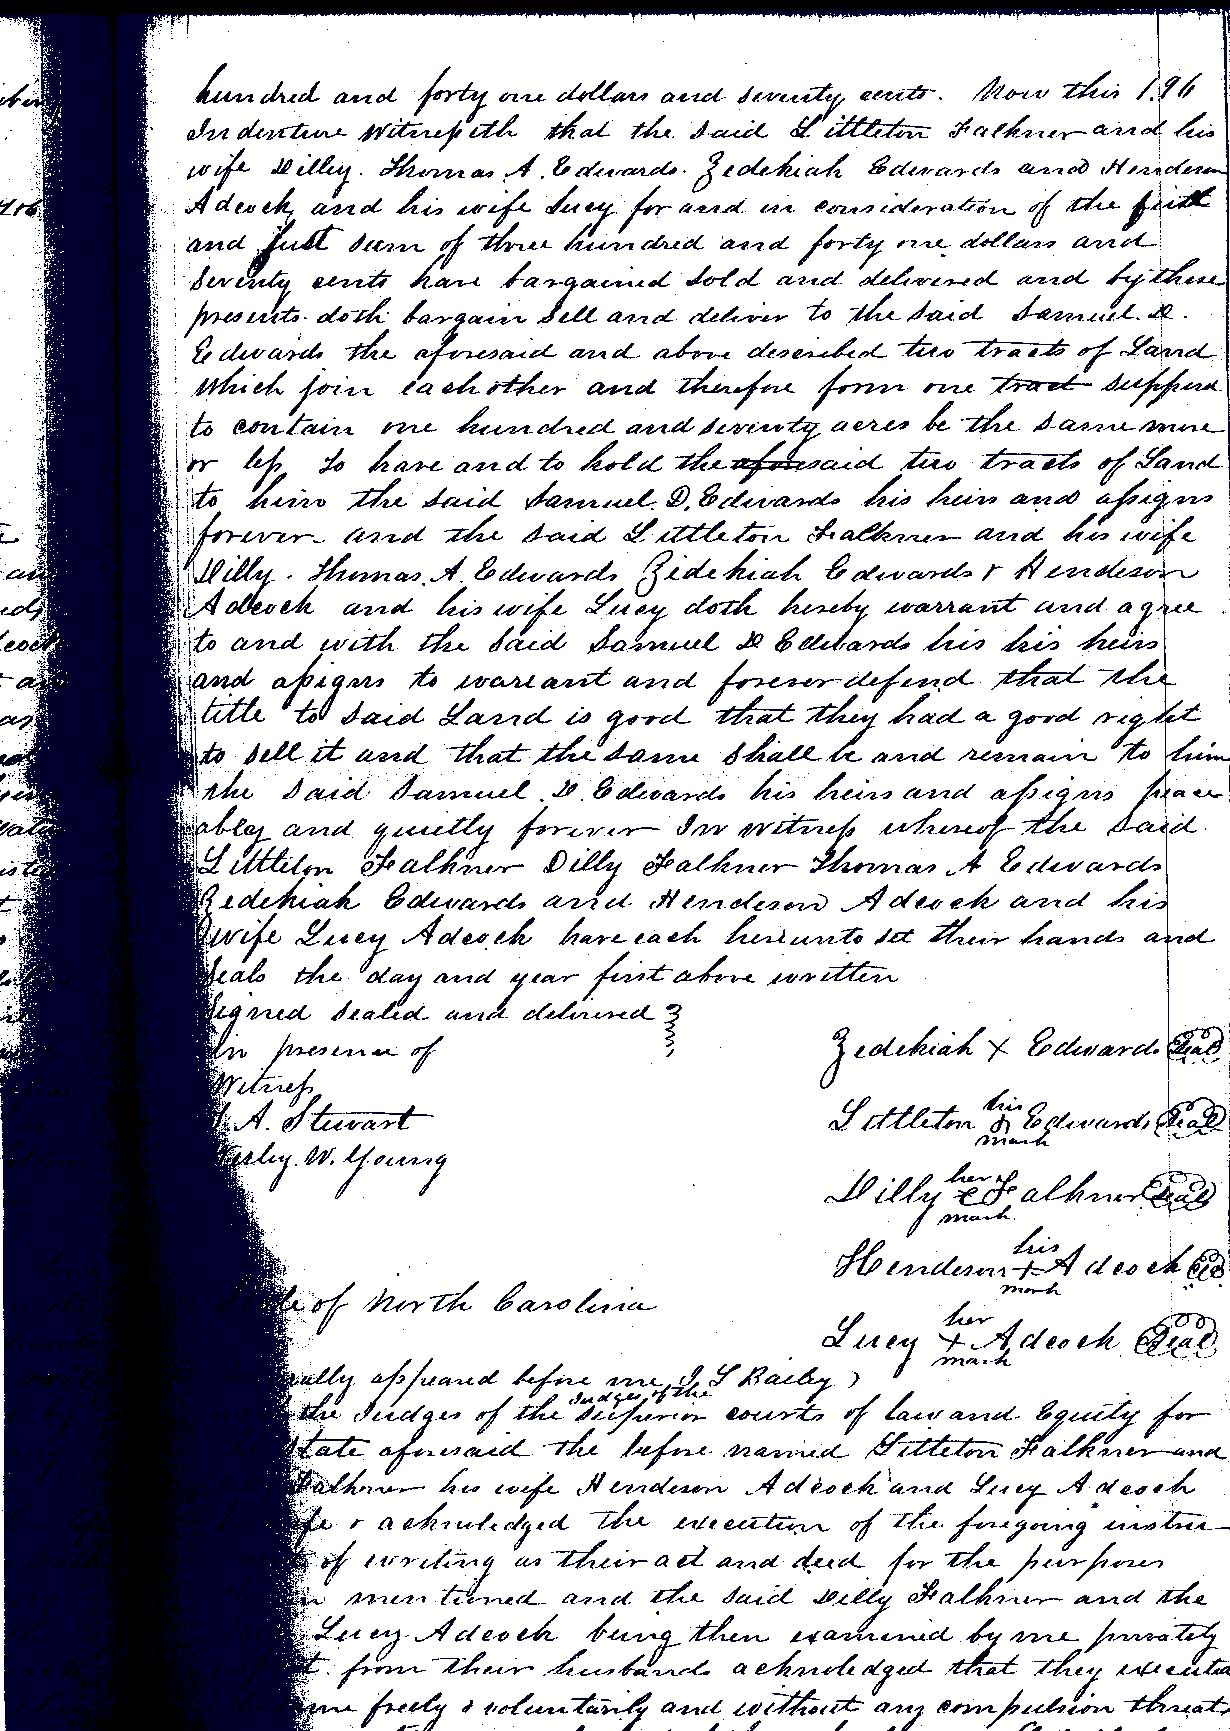 hundred and forty one dollars and seventy cents. Now this 196
Indenture witnesseth that the said Littleton Falkner and his
wife Dilley. Thomas. A. Edwards. Zedekiah Edwards and Henderson
Adcock and his wife Lucy for and in consideration of the
and just sum of three hundred and forty one dollars and
seventy cents have bargained sold and delivered and by these
presents. doth bargain sell and deliver to the said Samuel. D.
Edwards the aforesaid and above described two tracts of Land
which join each other and therefore form one tract supposed
to contain one hundred and seventy acres be the same more
or less To have and to hold the aforesaid two tracts of Land
to him the said Samuel. D. Edwards his heirs and assigns
forever and the said Littleton Falkner and his wife
Dilly. Thomas. A. Edwards Zedekiah Edwards & Henderson
Adcock and his wife Lucy doth hereby warrant and agree
to and with the said Samuel D Edwards his his heirs
and assigns to warrant and forever defend that the
title to said Land is good that they had a good right
to sell it and that the same shall be and remain to him
the said Samuel. D. Edwards his heirs and assigns peace
ably and quietly forever In witness whereof the said
Littleton Falkner Dilly Falkner Thomas A Edwards
Zedekiah Edwards and Henderson Adcock and his
wife Lucy Adcock have each hereunto set their hands and
seals the day and year first above written
Signed sealed and delivered
in presence of
Zedekiah X Edwards Seal
Witness
A. Stewart
his
Littleton Edwards Seal
mark
Wesley. W. Young
her
Dilly Falkner Seal
mark
his
Henderson + Adcock
mark
State of North Carolina
her
Lucy + Adcock Seal
mark
appeared before me J. S Bailey
Judges of the
the Judges of the Superior courts of law and Equity for
State aforesaid the before named Littleton Falkner and
Falkner his wife Henderson Adcock and Lucy Adcock
& acknoledged the execution of the foregoing instru-
of writing as their act and deed for the purposes
mentioned and the said Dilly Falkner and the
Lucy Adcock being then examined by me privately
from their husbands acknoledged that they executed
freely & voluntarily and without any compulsion threats